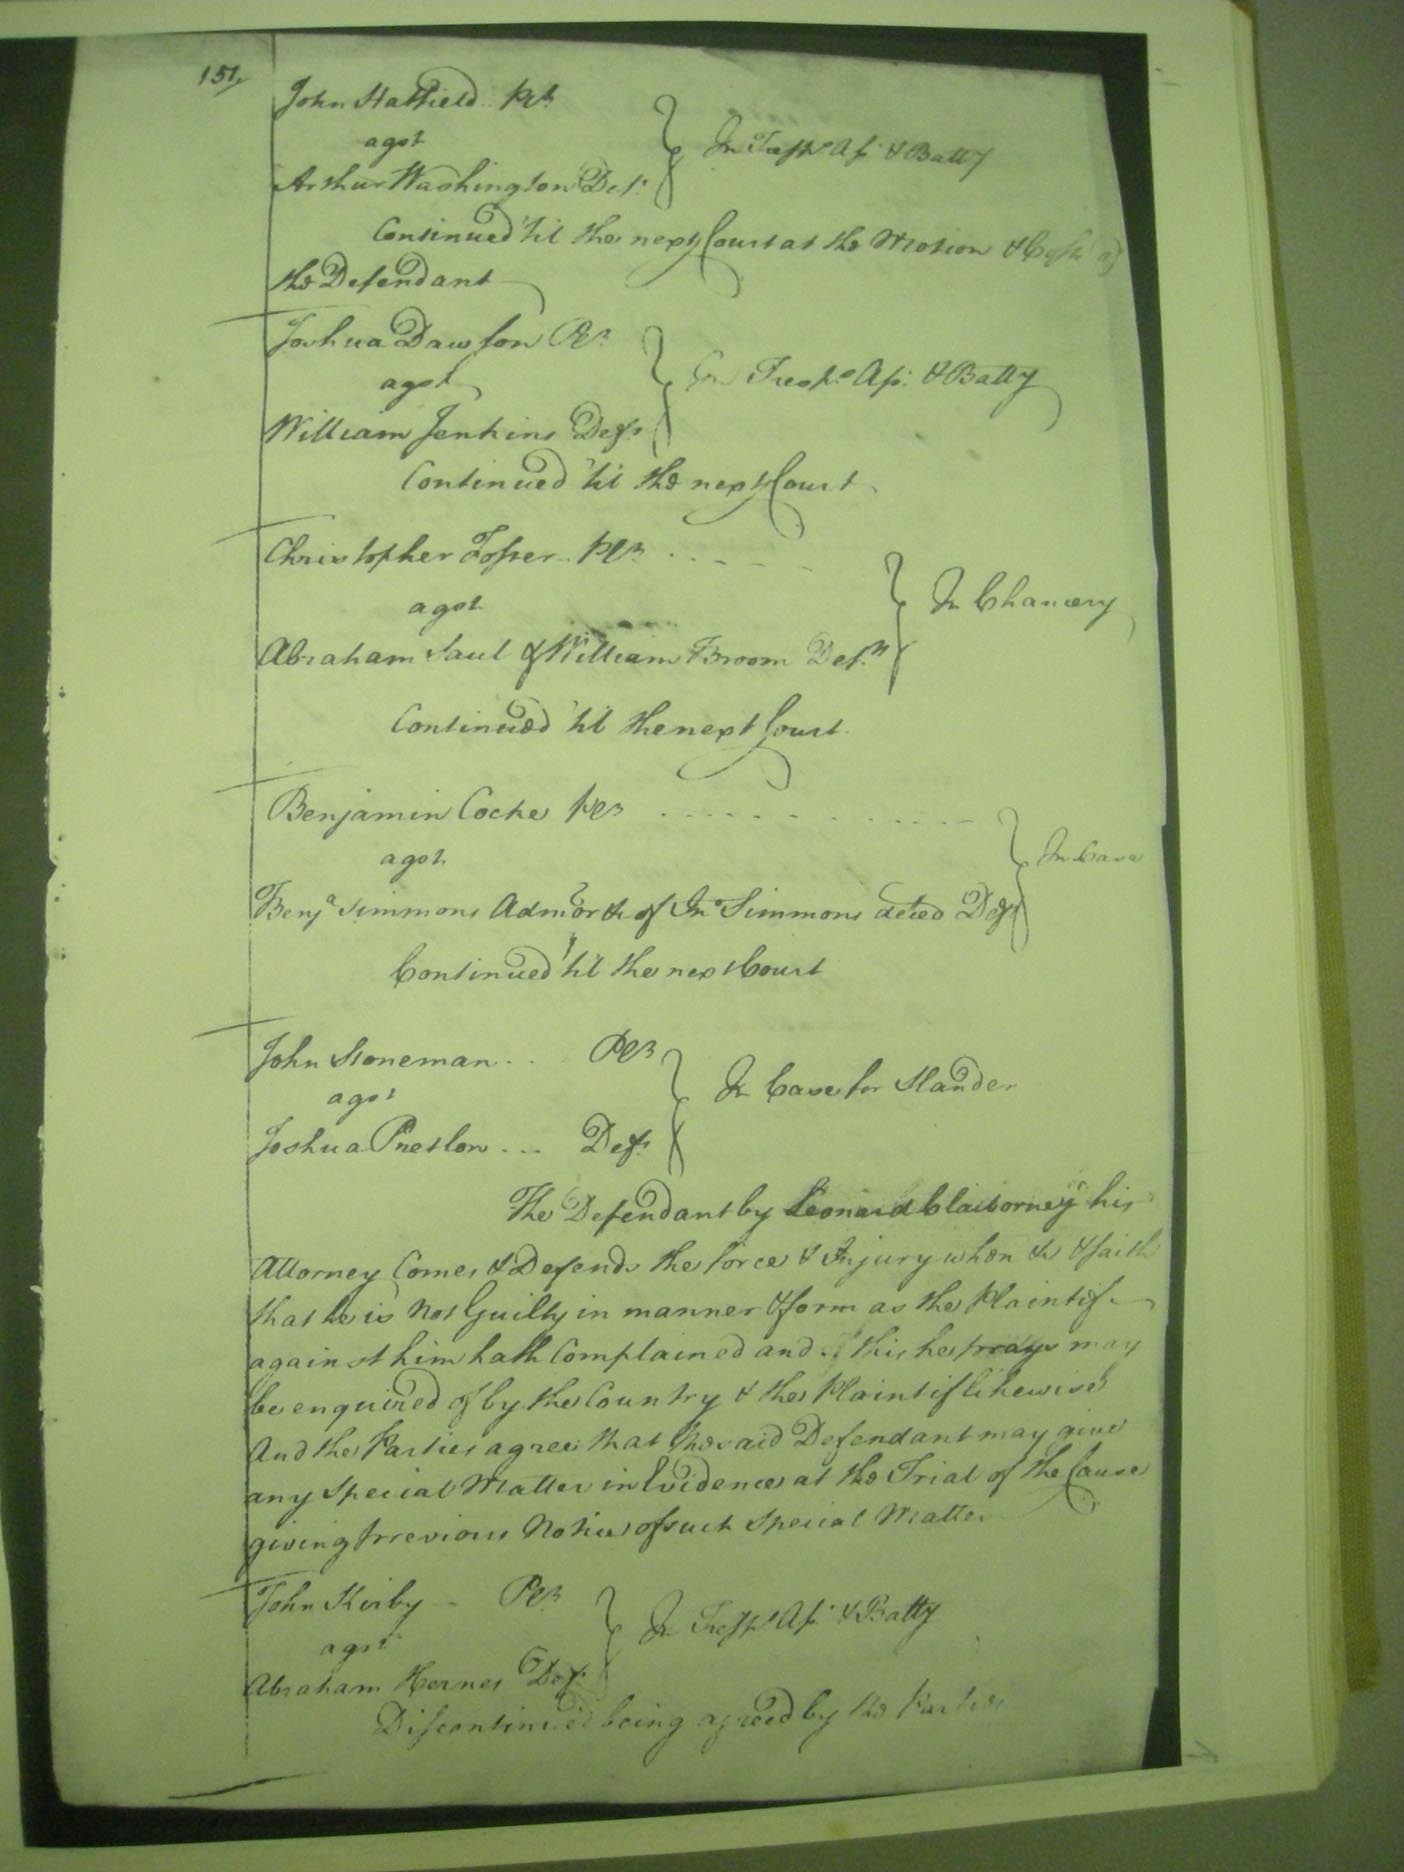 151,
John Hatfield Plt
agst
In Tresps Aſs: & Batty
Arthur Washington Deft
Continued 'til the next Court at the Motion & Costs of
the Defendant
Joshua Dawson Plt
agst
In Tresps Aſs: & Batty
William Jenkins Deft
Continued 'til the next Court
Christopher Foſter Plt
agst
In Chancery
Abraham Saul & William Broom Defts
Continued 'til the next Court
Benjamin Cocke Plt
agst
In Case
Benja Simmons Admor &c of Jno Simmons deced Deft
Continued 'til the next Court
John Stoneman Plt
agst
In Case for Slander
Joshua Preston Deft
The Defendant by Leonard Claiborney his
Attorney Comes & Defends the force & Injury when &c & saith
that he is Not Guilty in manner & form as the Plaintif
against him hath Complained and of this he prays may
be enquired of by the Country & the Plaintif likewise
And the Parties agree that the said Defendant may give
any Special Matter in Evidence at the Trial of the Cause
giving previous Notice of such Special Matter
John Kirby Plt
agst
In Tresps Aſs: & Batty
Abraham Hernes Deft
Diſcontinued being agreed by the Parties